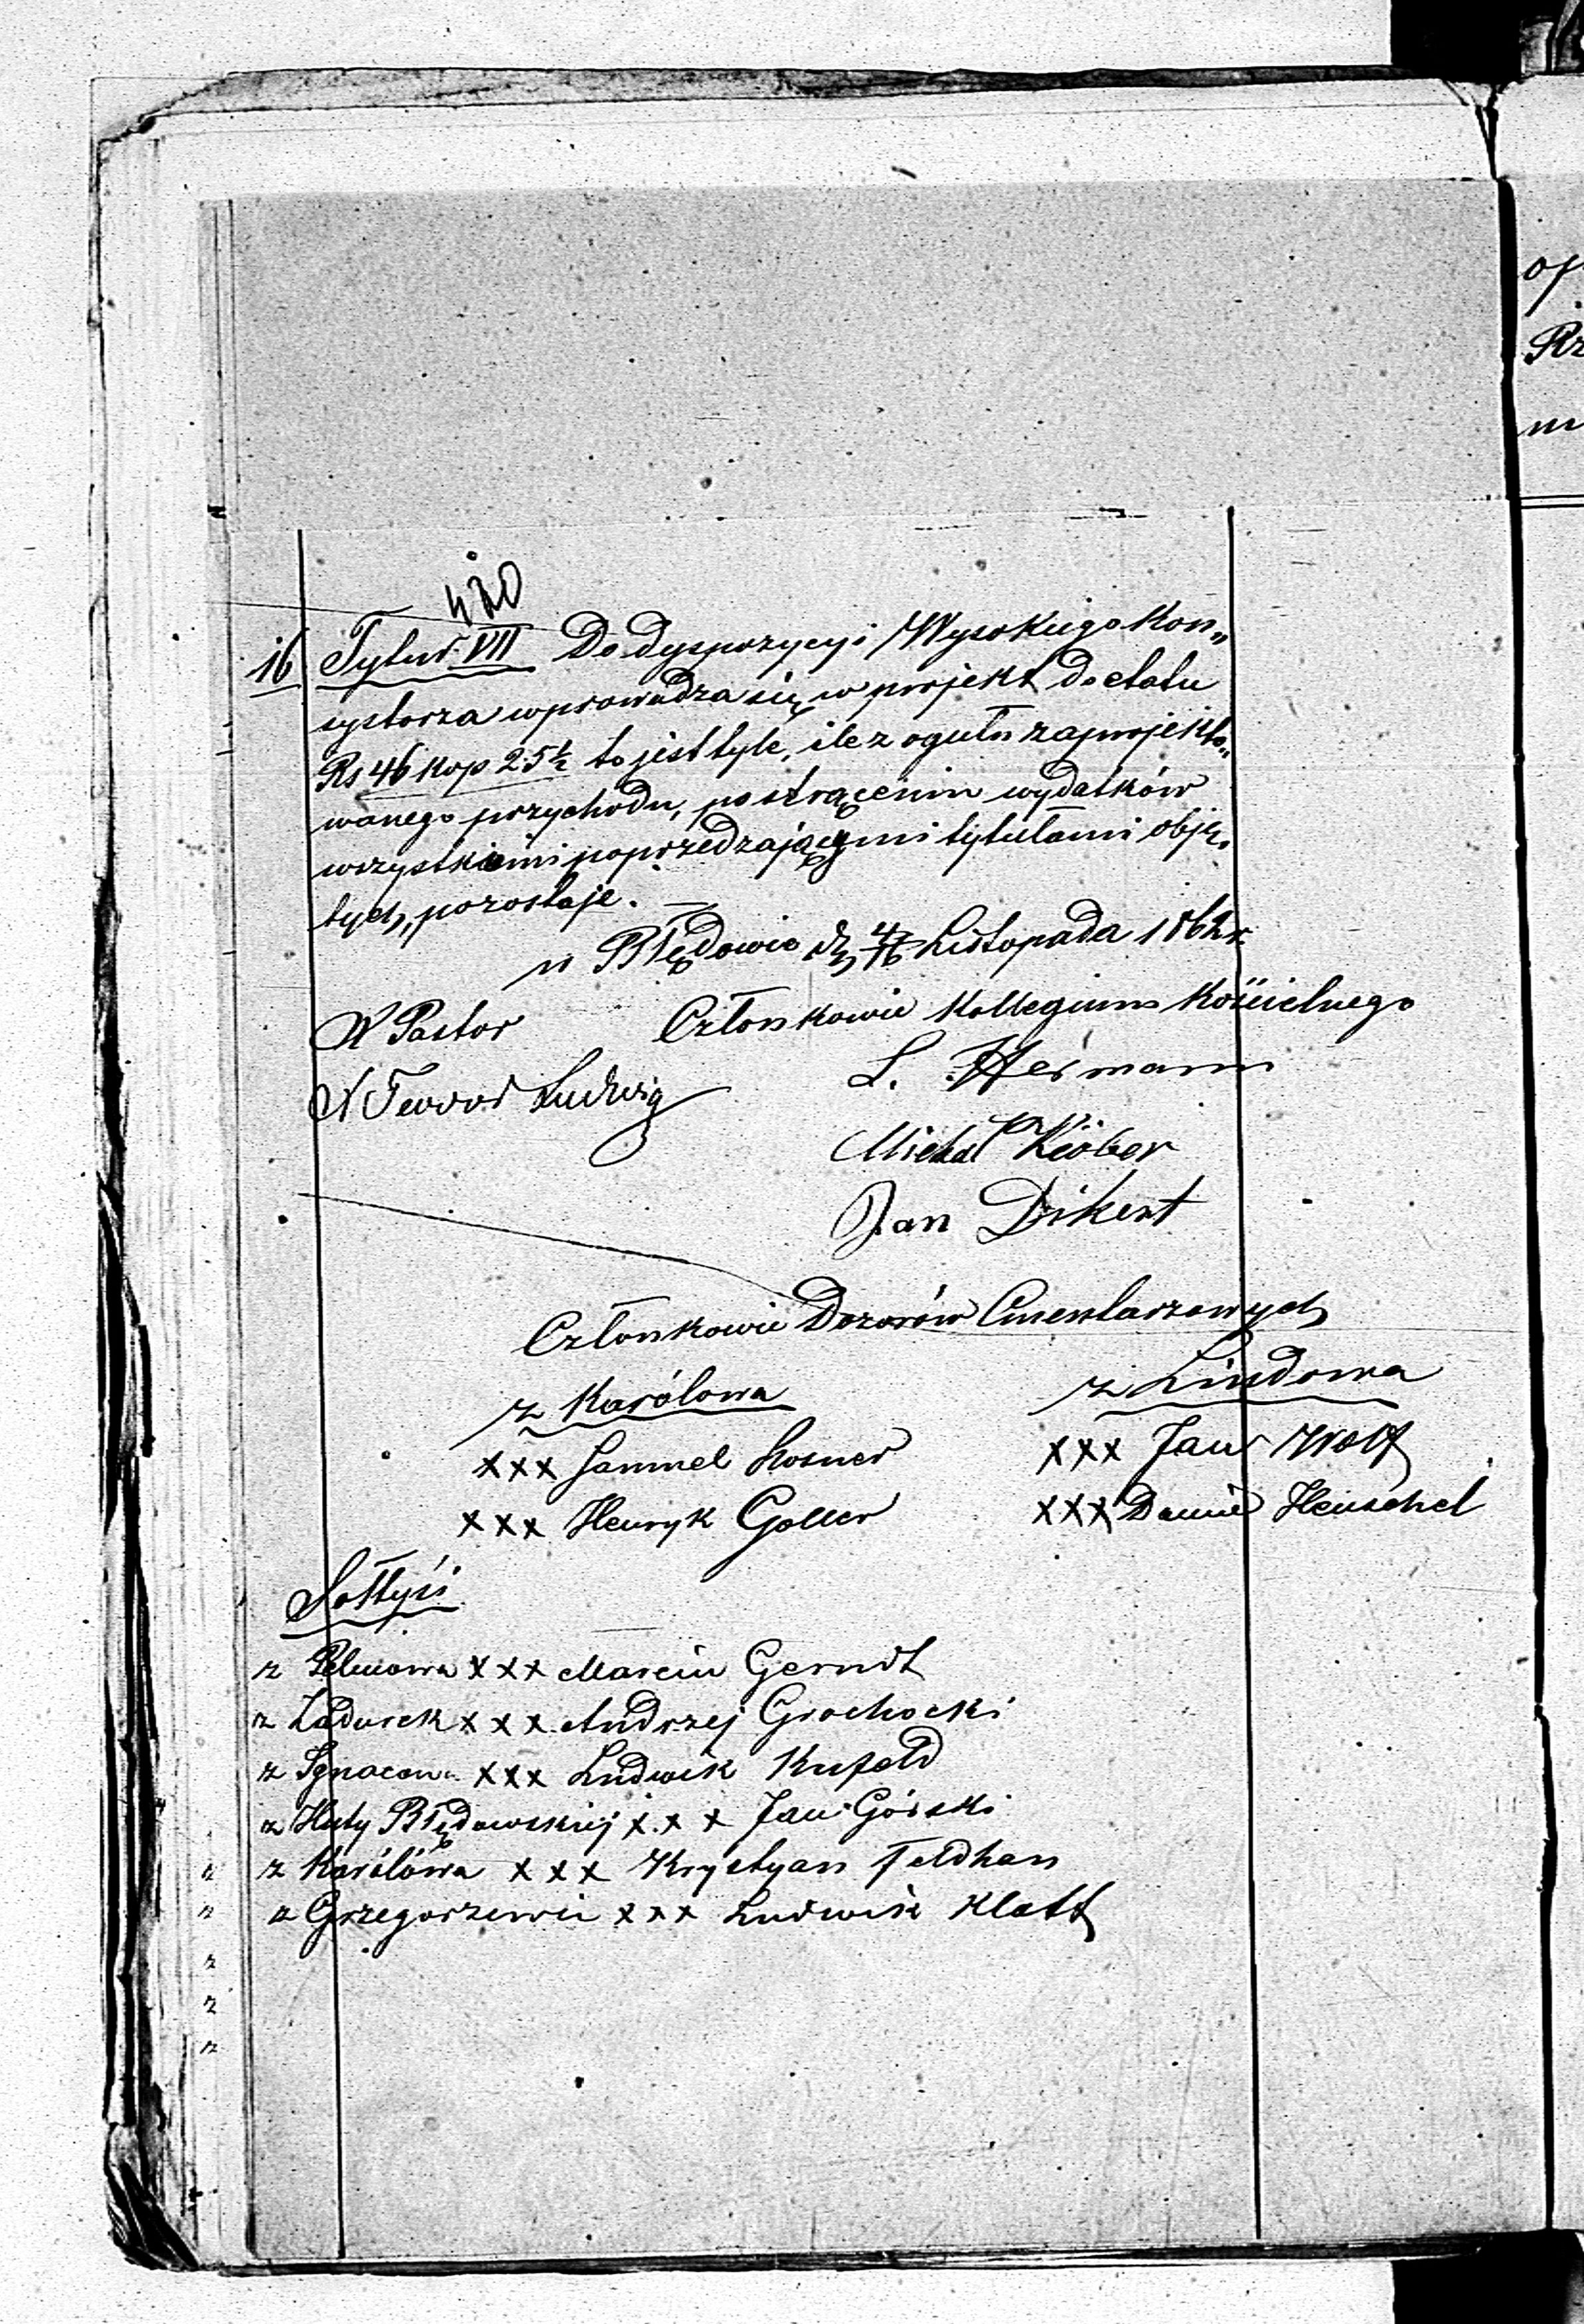 420
16 Tytuł VII Do dyspozycyi Wysokiego Kon„
systorza wprowadza się w projekt do etatu
Rs 46 kop 25½ to jest tyle, ile z ogułu zaprojekto„
wanego przychodu, po strąceniu wydatków
wszystkiemi poprzedzającymi tytułami obję„
tych, pozostaje. —
w Błędowie d. 4/16 Listopada 1862 r.
X Pastor Członkowie Kollegium Kościelnego
X Teodor Ludwig L. Hermann
Michał Kiöber
Jan Dikert
Członkowie Dozorów Cmentarzowych
z Karólowa z Lindowa
xxx Samuel Rosner xxx Jan Wolf
xxx Henryk Goller xxx Daniel Henschel
Sołtysi
z xxx Marcin Gerndt
z Zadurek xxx Andrzej Grochocki
z Ignacowa xxx Ludwik Kufeld
z Huty Błędowskiej x.x x Jan Górski
z Karólówa xxx Krystyan Feldhan
z Grzegorzewic xxx Ludwik Klatt